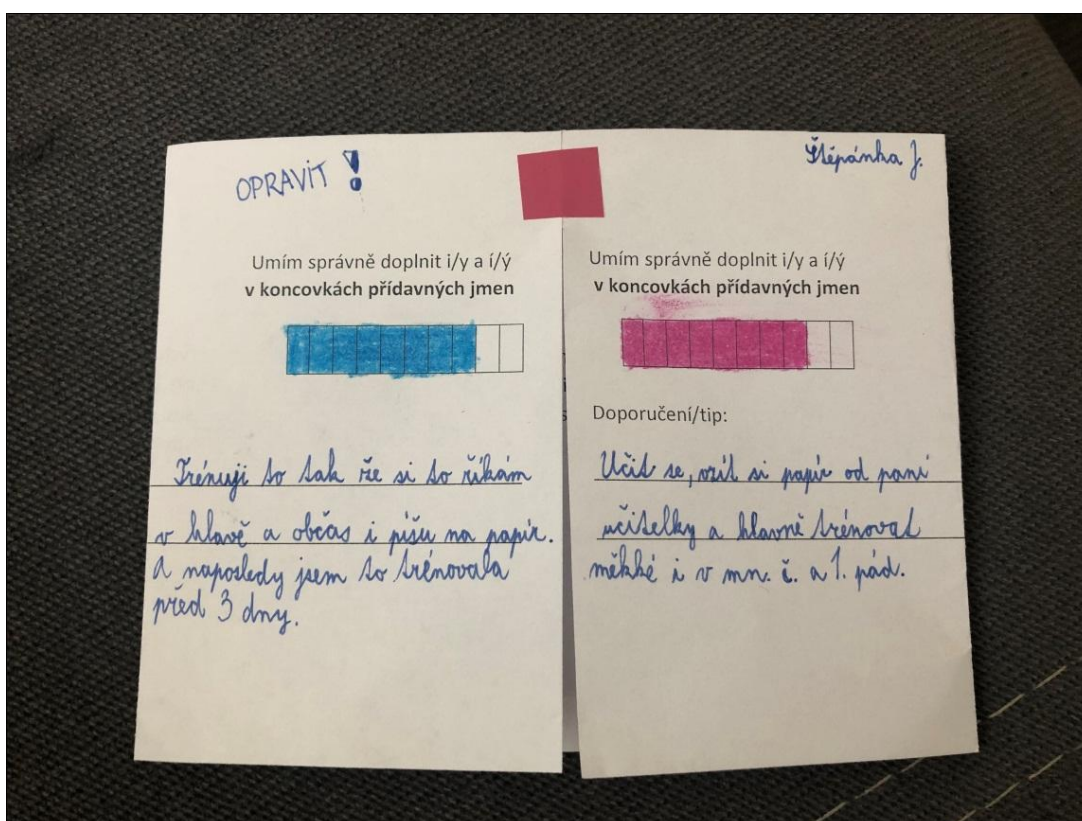 OPRAVIT!
Umím správně doplnit i/y a í/ý
v koncovkách přídavných jmen
Trénuji to tak že si to říkám
v hlavě a občas i píšu na papír.
A naposledy jsem to trénovala
před 3 dny.
Štěpánka J.
Umím správně doplnit i/y a í/ý
v koncovkách přídavných jmen
Doporučení/tip:
Učit se, vzít si papír od paní
učitelky a hlavně trénovat
měkké i v mn. č. a 1. pád.